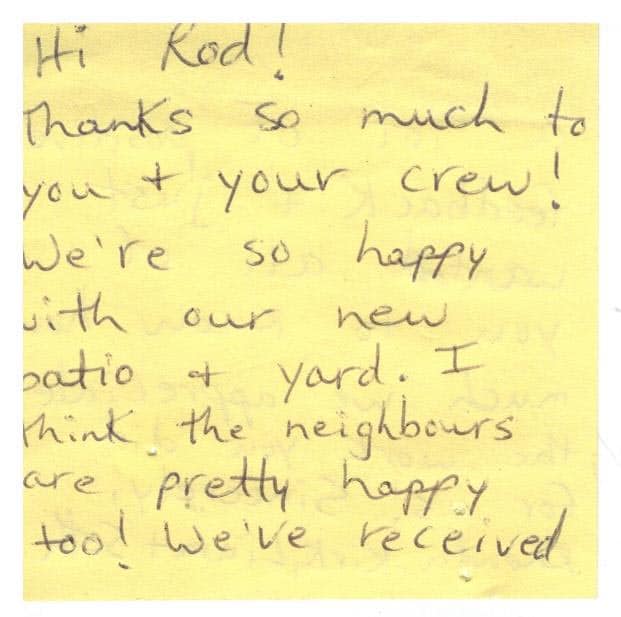 Hi Rod!
Thanks so much to
you + your crew!
We're so happy
with our new
patio + yard. I
think the neighbours
are pretty happy
too! We've received